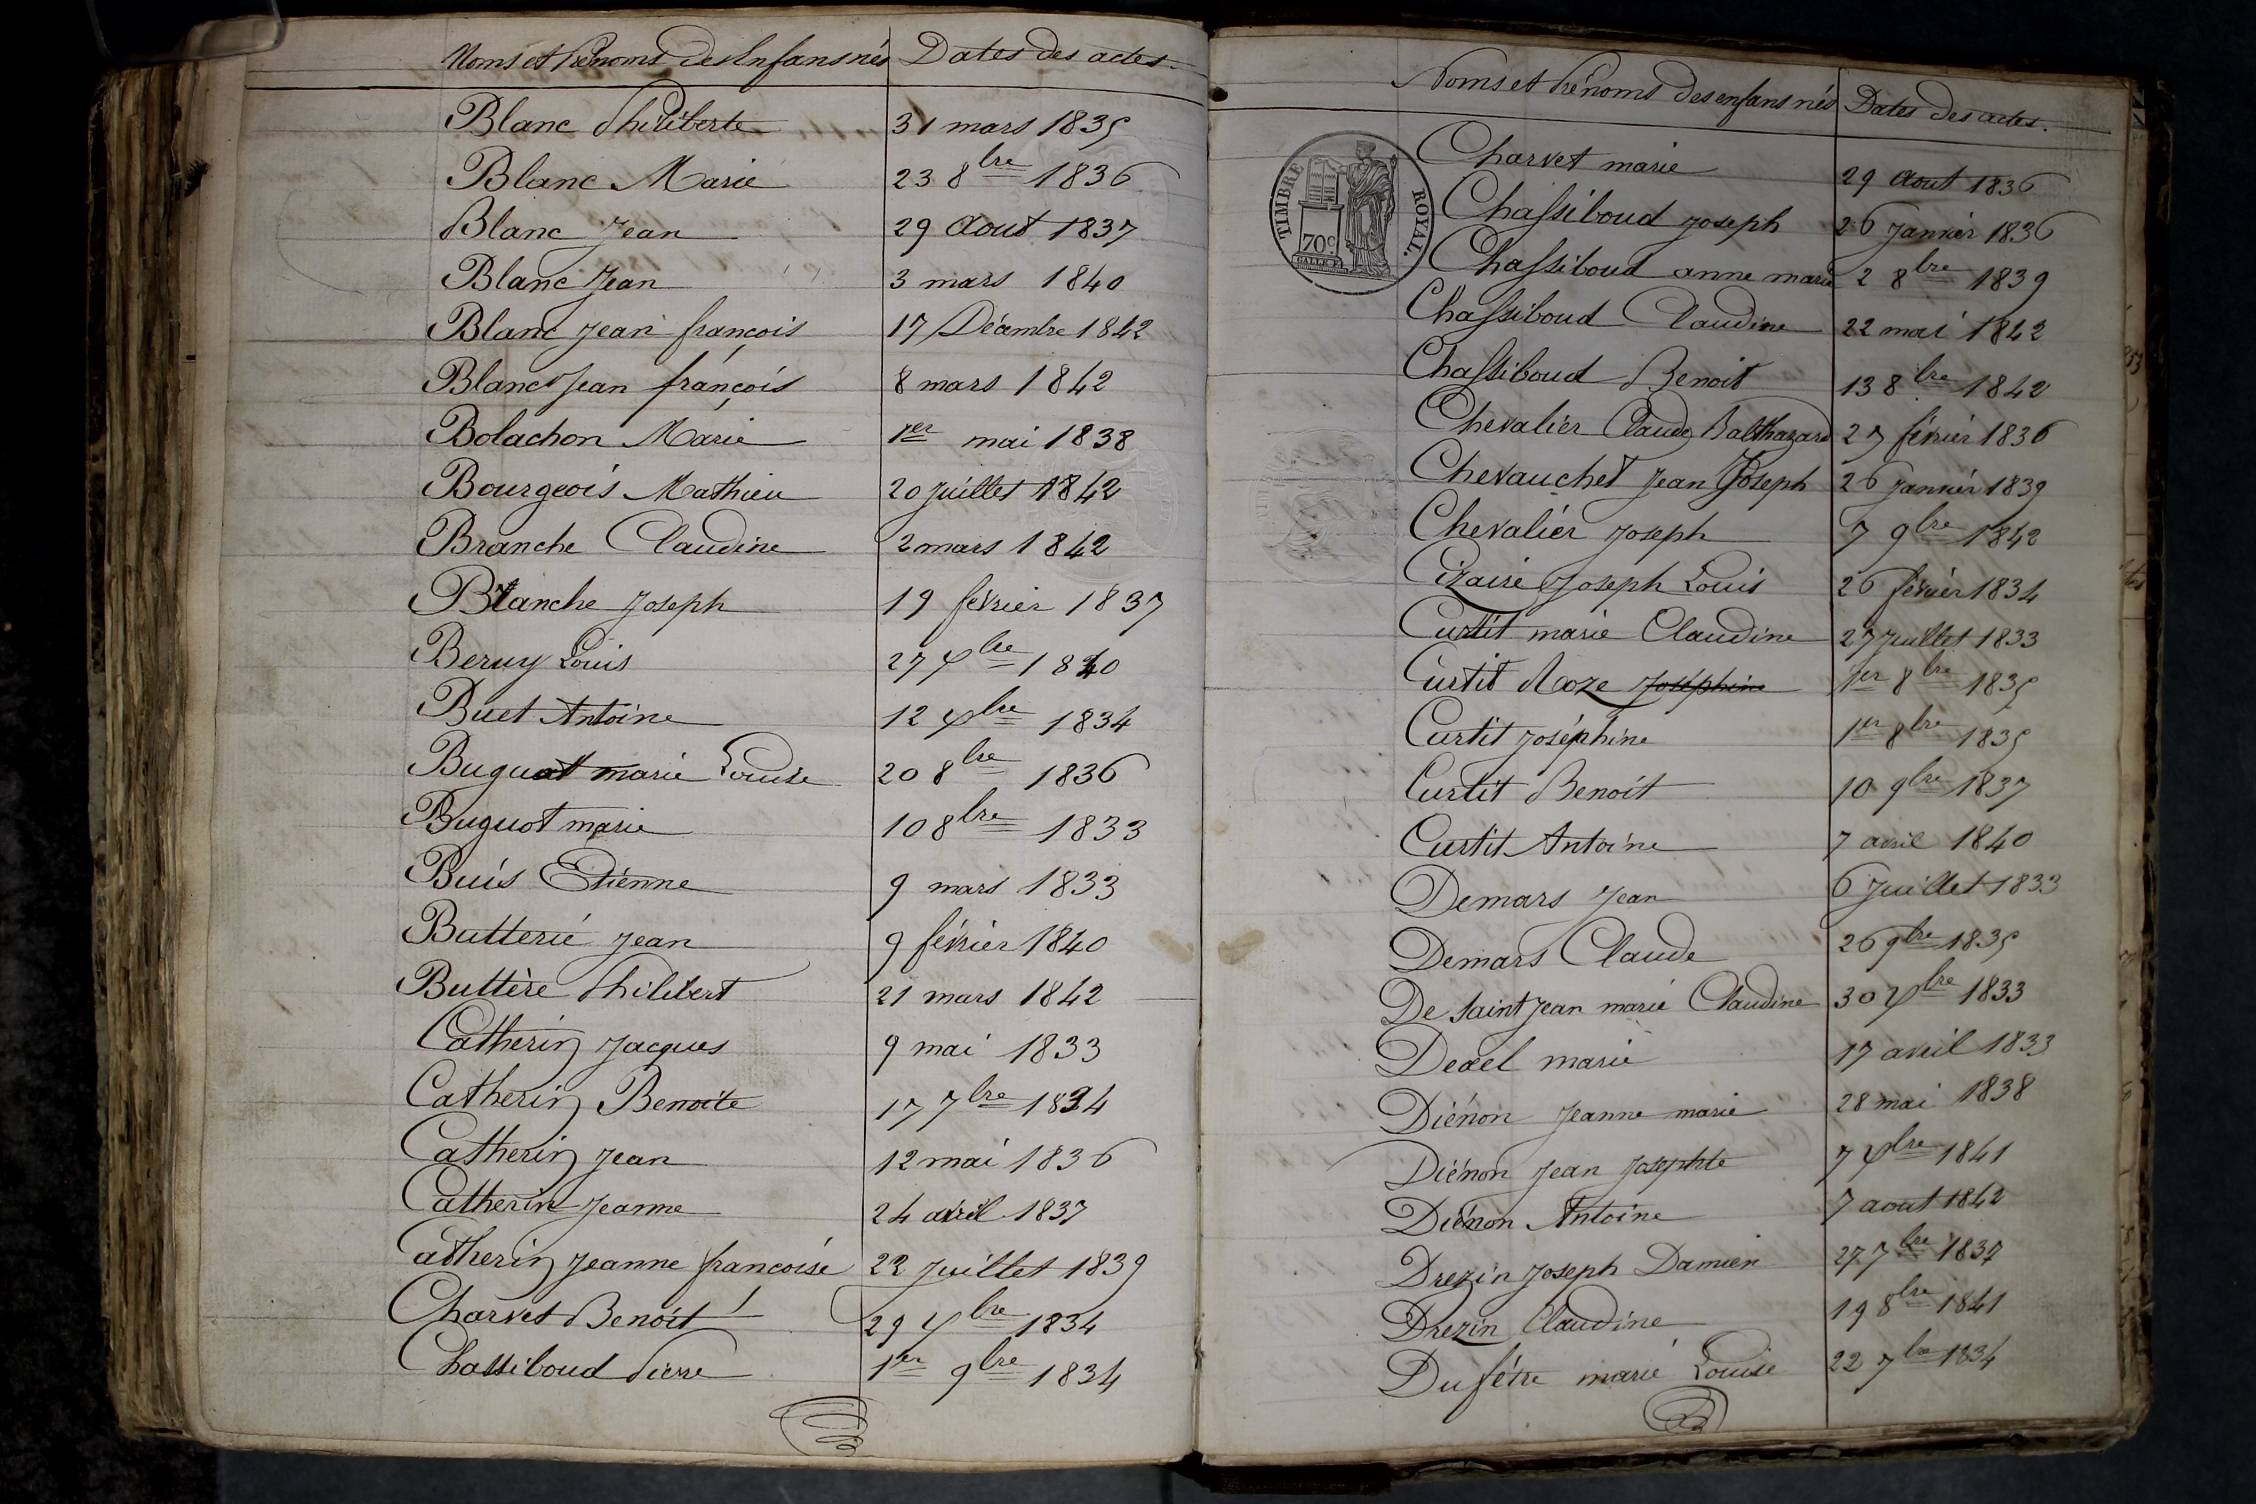 Noms et Prénoms des Enfans nés Dates des actes.
Blanc Philiberte 31 mars 1835
Blanc Marie 23 8bre 1836
Blanc Jean 29 Aout 1837
Blanc Jean 3 mars 1840
Blanc Jean françois 17 Décembre 1842
Blanc Jean françois 8 mars 1842
Bolachon Marie 1er mai 1838
Bourgeois Mathieu 20 juillet 1842
Branche Claudine 2 mars 1842
Branche Joseph 19 février 1837
Beruy Louis 27 Xbre 1840
Buet Antoine 12 Xbre 1834
Buguot marie Louise 20 8bre 1836
Buguot marie 10 8bre 1833
Buis Etienne 9 mars 1833
Butterie Jean 9 février 1840
Buttère Philibert 21 mars 1842
Catherin Jacques 9 mai 1833
Catherin Benoite 17 7bre 1834
Catherin Jean 12 mai 1836
Catherin Jeanne 24 avril 1837
Catherin Jeanne françoise 22 juillet 1839
Charvet Benoit 29 Xbre 1834
Chassiboud Pierre 1er 9bre 1834
Noms et Prénoms des enfans nés Dates des actes.
TIMBRE ROYAL.
70c
Charvet marie 29 aout 1836
Chassiboud Joseph 26 Janvier 1836
Chassiboud anne marie 2 8bre 1839
Chassiboud Claudine 22 mai 1842
Chassiboud Benoit 13 8bre 1842
Chevalier Claude Balthazard 27 février 1836
Chevauchet Jean Joseph 26 Janvier 1839
Chevalier Joseph 7 9bre 1842
Cizaire Joseph Louis 26 février 1834
Curtit marie Claudine 27 juillet 1833
Curtit Roze Joséphine 1er 8bre 1835
Curtit Joséphine 1er 8bre 1835
Curtit Benoit 10 9bre 1837
Curtit Antoine 7 avril 1840
Demars Jean 6 Juillet 1833
Demars Claude 26 9bre 1835
De Saint Jean marie Claudine 30 Xbre 1833
Dexel marie 17 avril 1833
Diénon Jeanne marie 28 mai 1838
Diénon Jean Josephte 7 Xbre 1841
Diénon Antoine 7 aout 1842
Drezin Joseph Damien 27 7bre 1837
Drezin Claudine 19 8bre 1841
Dufêtre marie Louise 22 7bre 1834